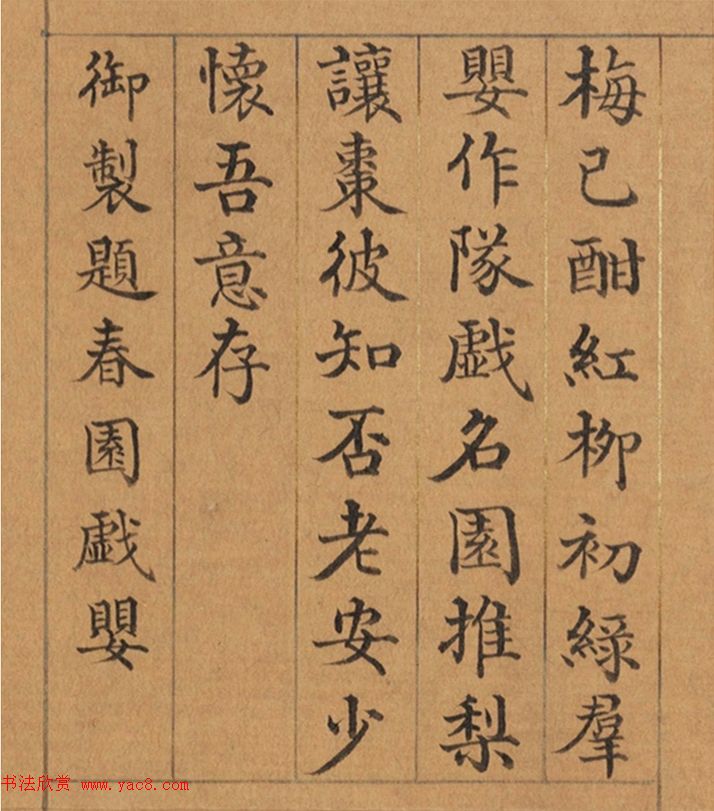 梅已酣紅柳初綠羣
嬰作隊戯名園推梨
讓棗彼知否老安少
懷吾意存
御製題春園戯嬰
书法欣赏 www.yac8.com